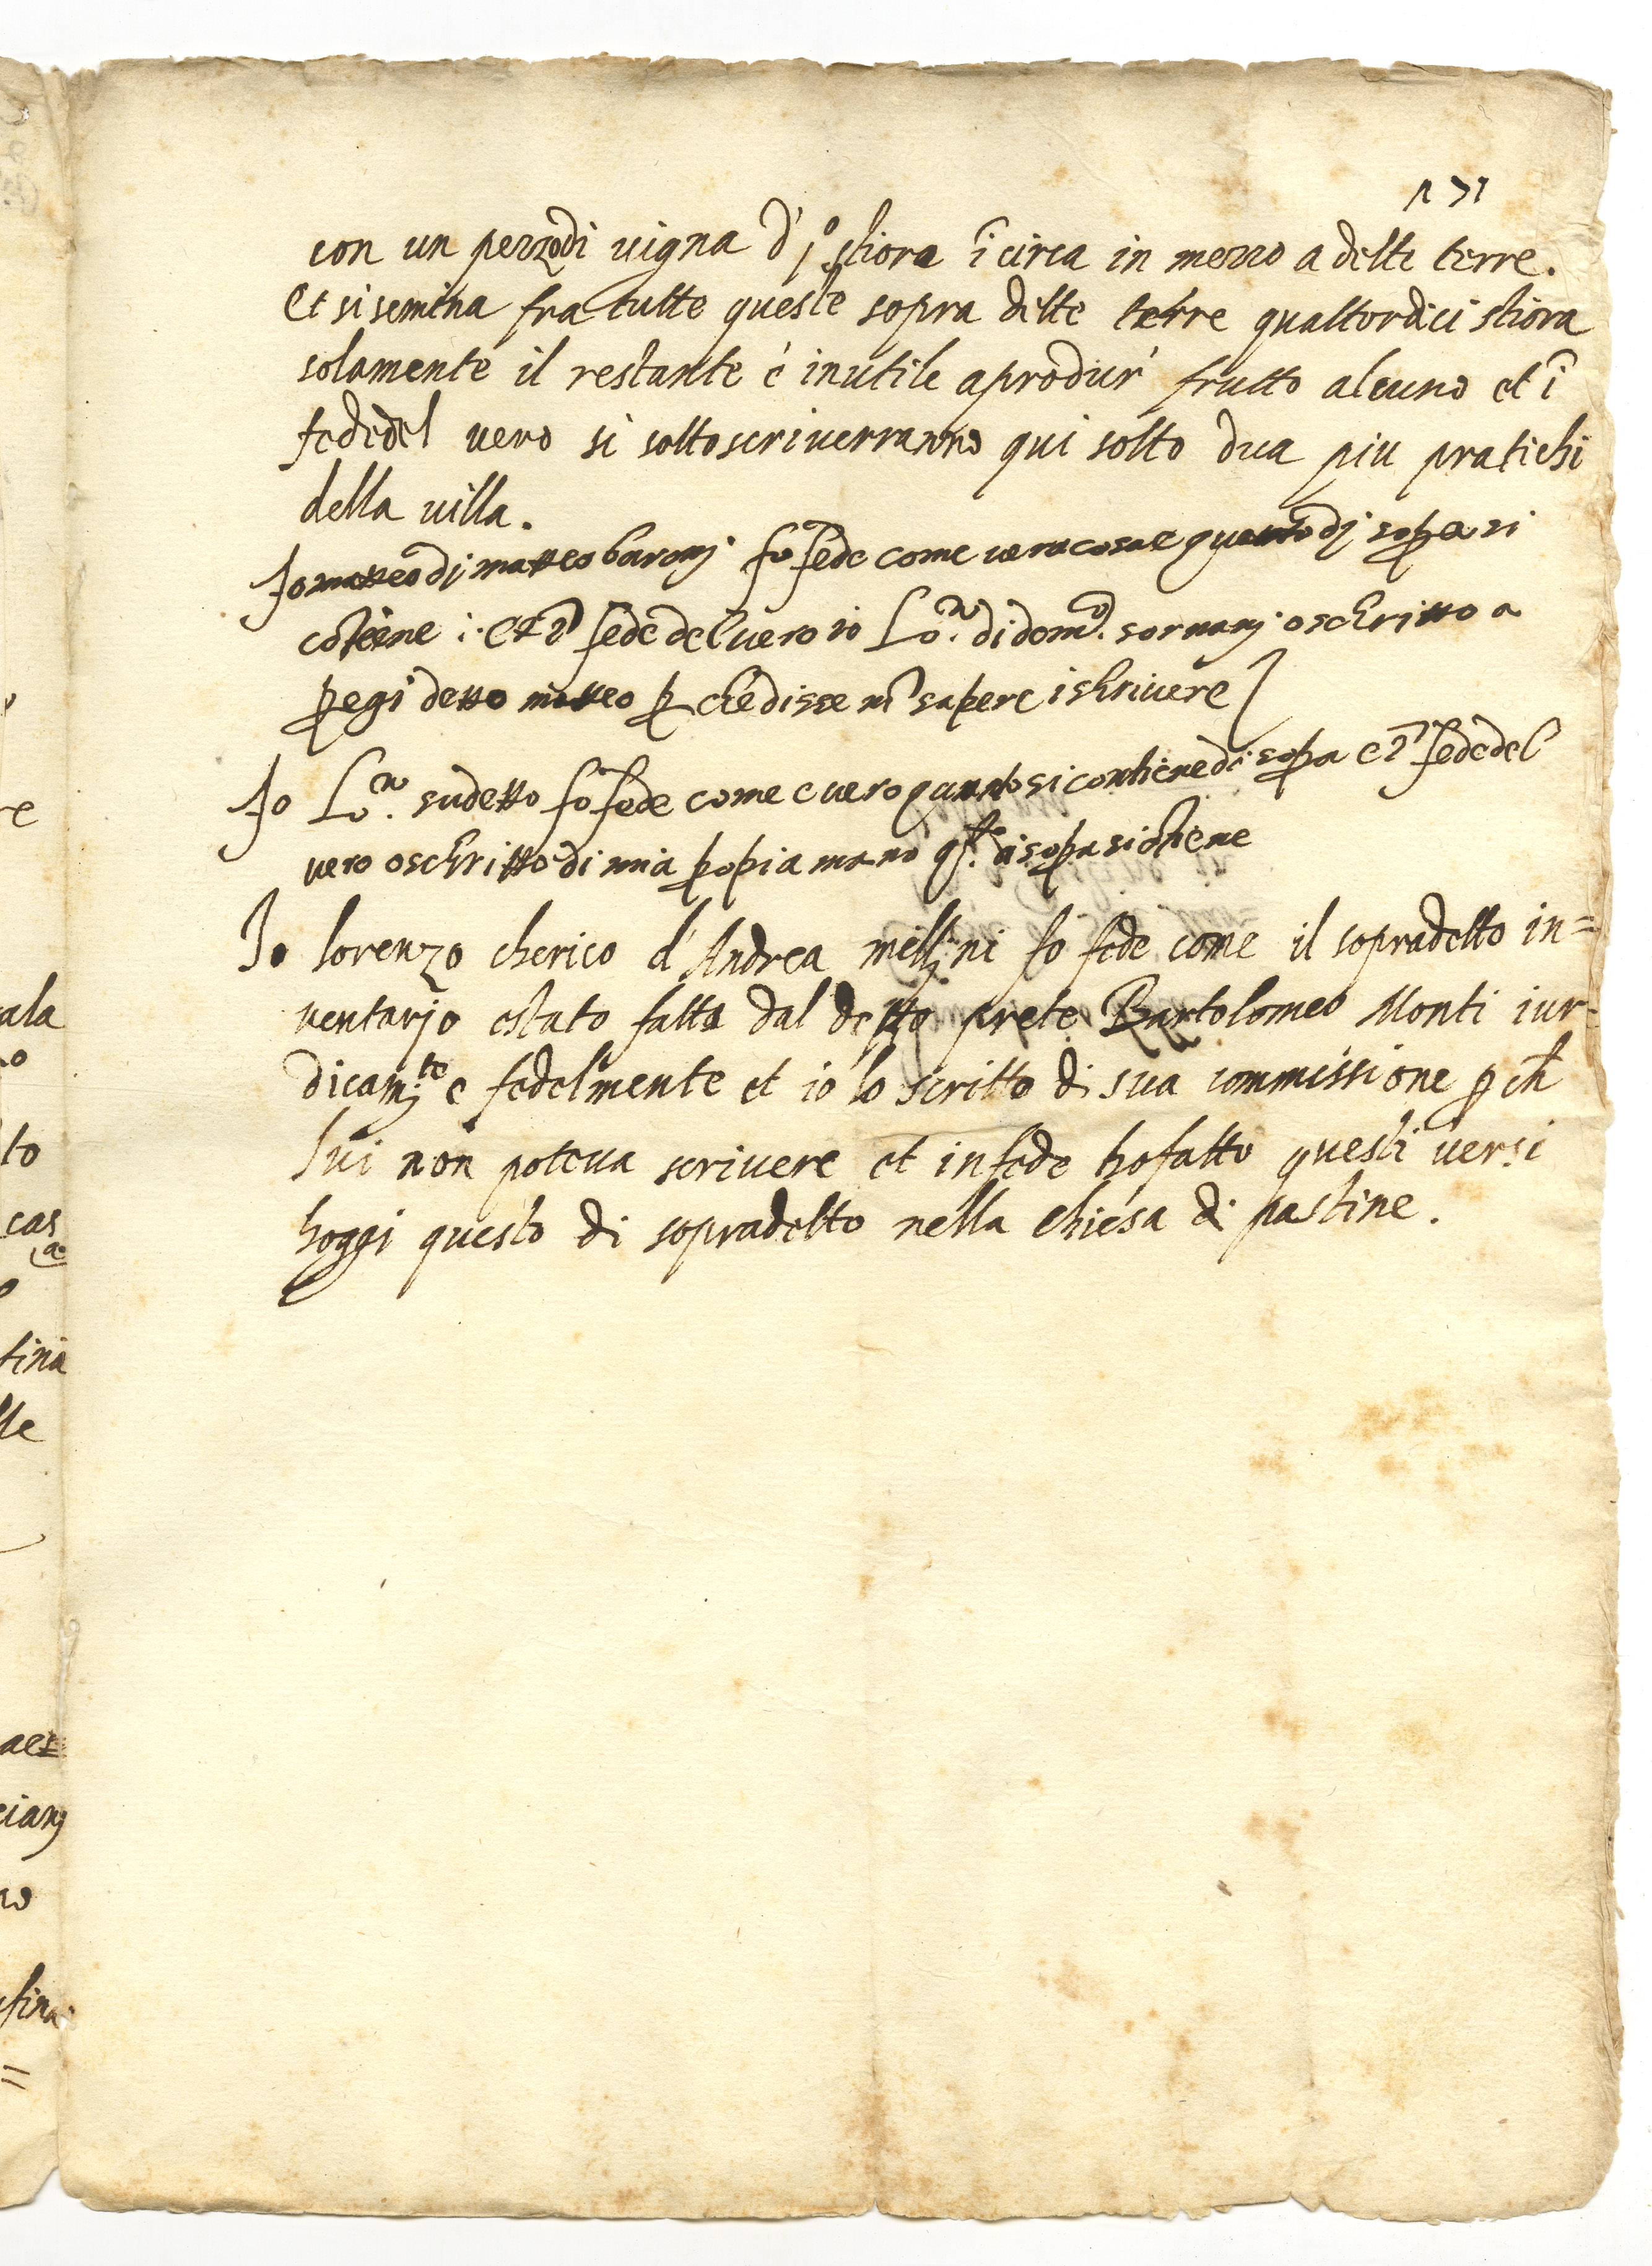 171
con un pezzo di vigna d' j° stiora ĩ circa in mezzo a dette terre.
Et si semina fra tutte queste sopra ditte terre quattordici stiora
solamente il restante è inutile a produr' frutto alcuno et ĩ
fede del vero si sottoscriverranno qui sotto dua piu pratichi
della villa.
Jo matteo dj matteo baronj fo fede come vera cosa e quanto dj sopra si
cõtiene i. et ĩ fede del vero io Lo.^zo di dom.^co sornanj o schritto a
pregi detto matteo p che disse nõ sapere ischrivere
Jo Lo.^zo sudetto fo fede come e vero quanto si contiene di sopra e ĩ fede del
vero o schritto di mia propia mano q.^to di sopra si cõtiene
Jo lorenzo cherico d'Andrea mellini fo fede come il sopradetto in=
ventarjo e stato fatto dal detto prete Bartolomeo Monti iur-
dicam.^te e fedelmente et io lo scritto di sua commissione p ch
lui non poteva scrivere et in fede ho fatto questi versi
hoggi questo di sopradetto nella chiesa di pastine.
re
ala
to
cas
tina
lle